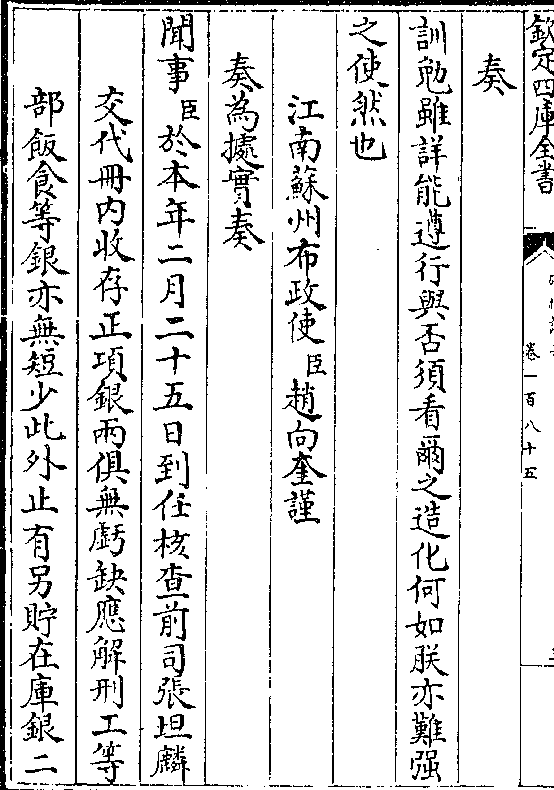 欽定四庫全書
卷一百八十五
奏
訓勉雖詳能遵行與否須看爾之造化何如朕亦難强
之使然也
江南蘇州布政使臣趙向奎謹
奏為據實奏
聞事臣於本年二月二十五日到任核查前司張坦麟
交代冊内收存正項銀兩俱無虧缺應解刑工等
部飯食等銀亦無短少此外止有另貯在庫銀二